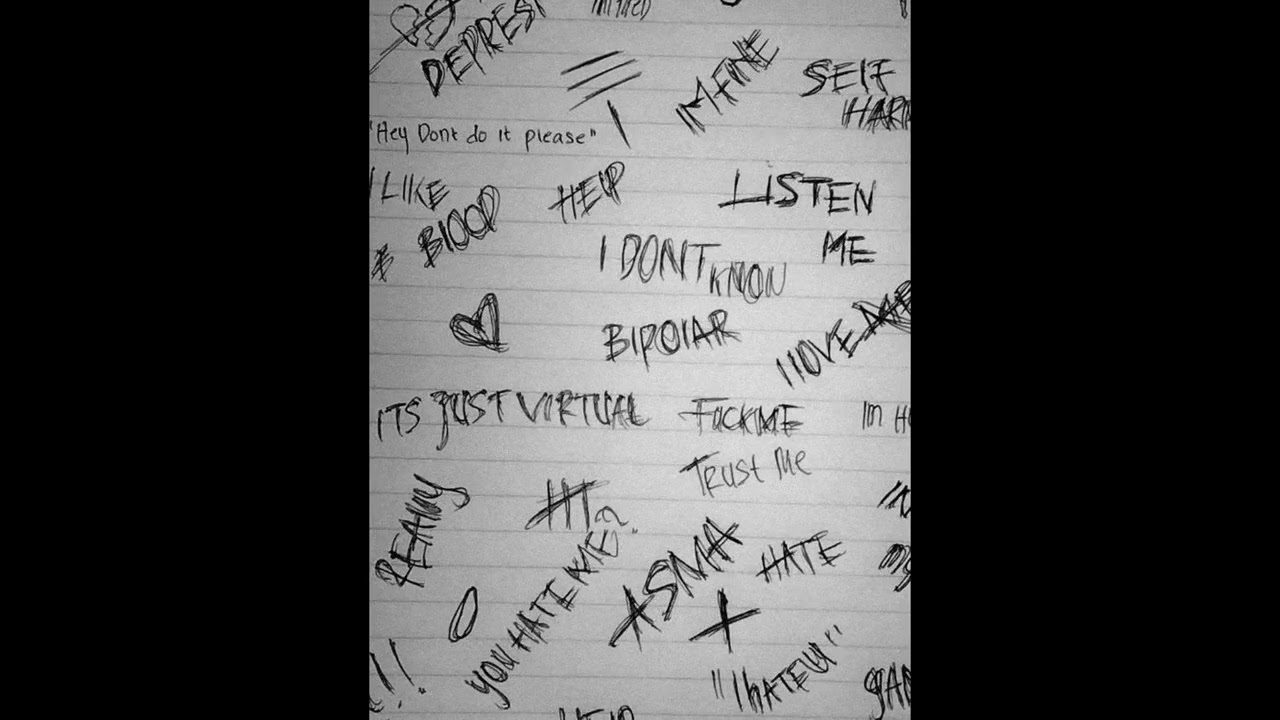 DEPRES
IM FINE
SELF
HARM
"Hey Dont do it please"
I LIKE
BlOOD
HElP
LISTEN
ME
I DONT
KNOW
BIPOlAR
I lOVE
ITS JUST VIRTUAL
FUCK ME
IM
TRUST Me
REAllY
HI
YOU HATE ME?
ASMA
HATE
!!
"I hATE U"
HElP